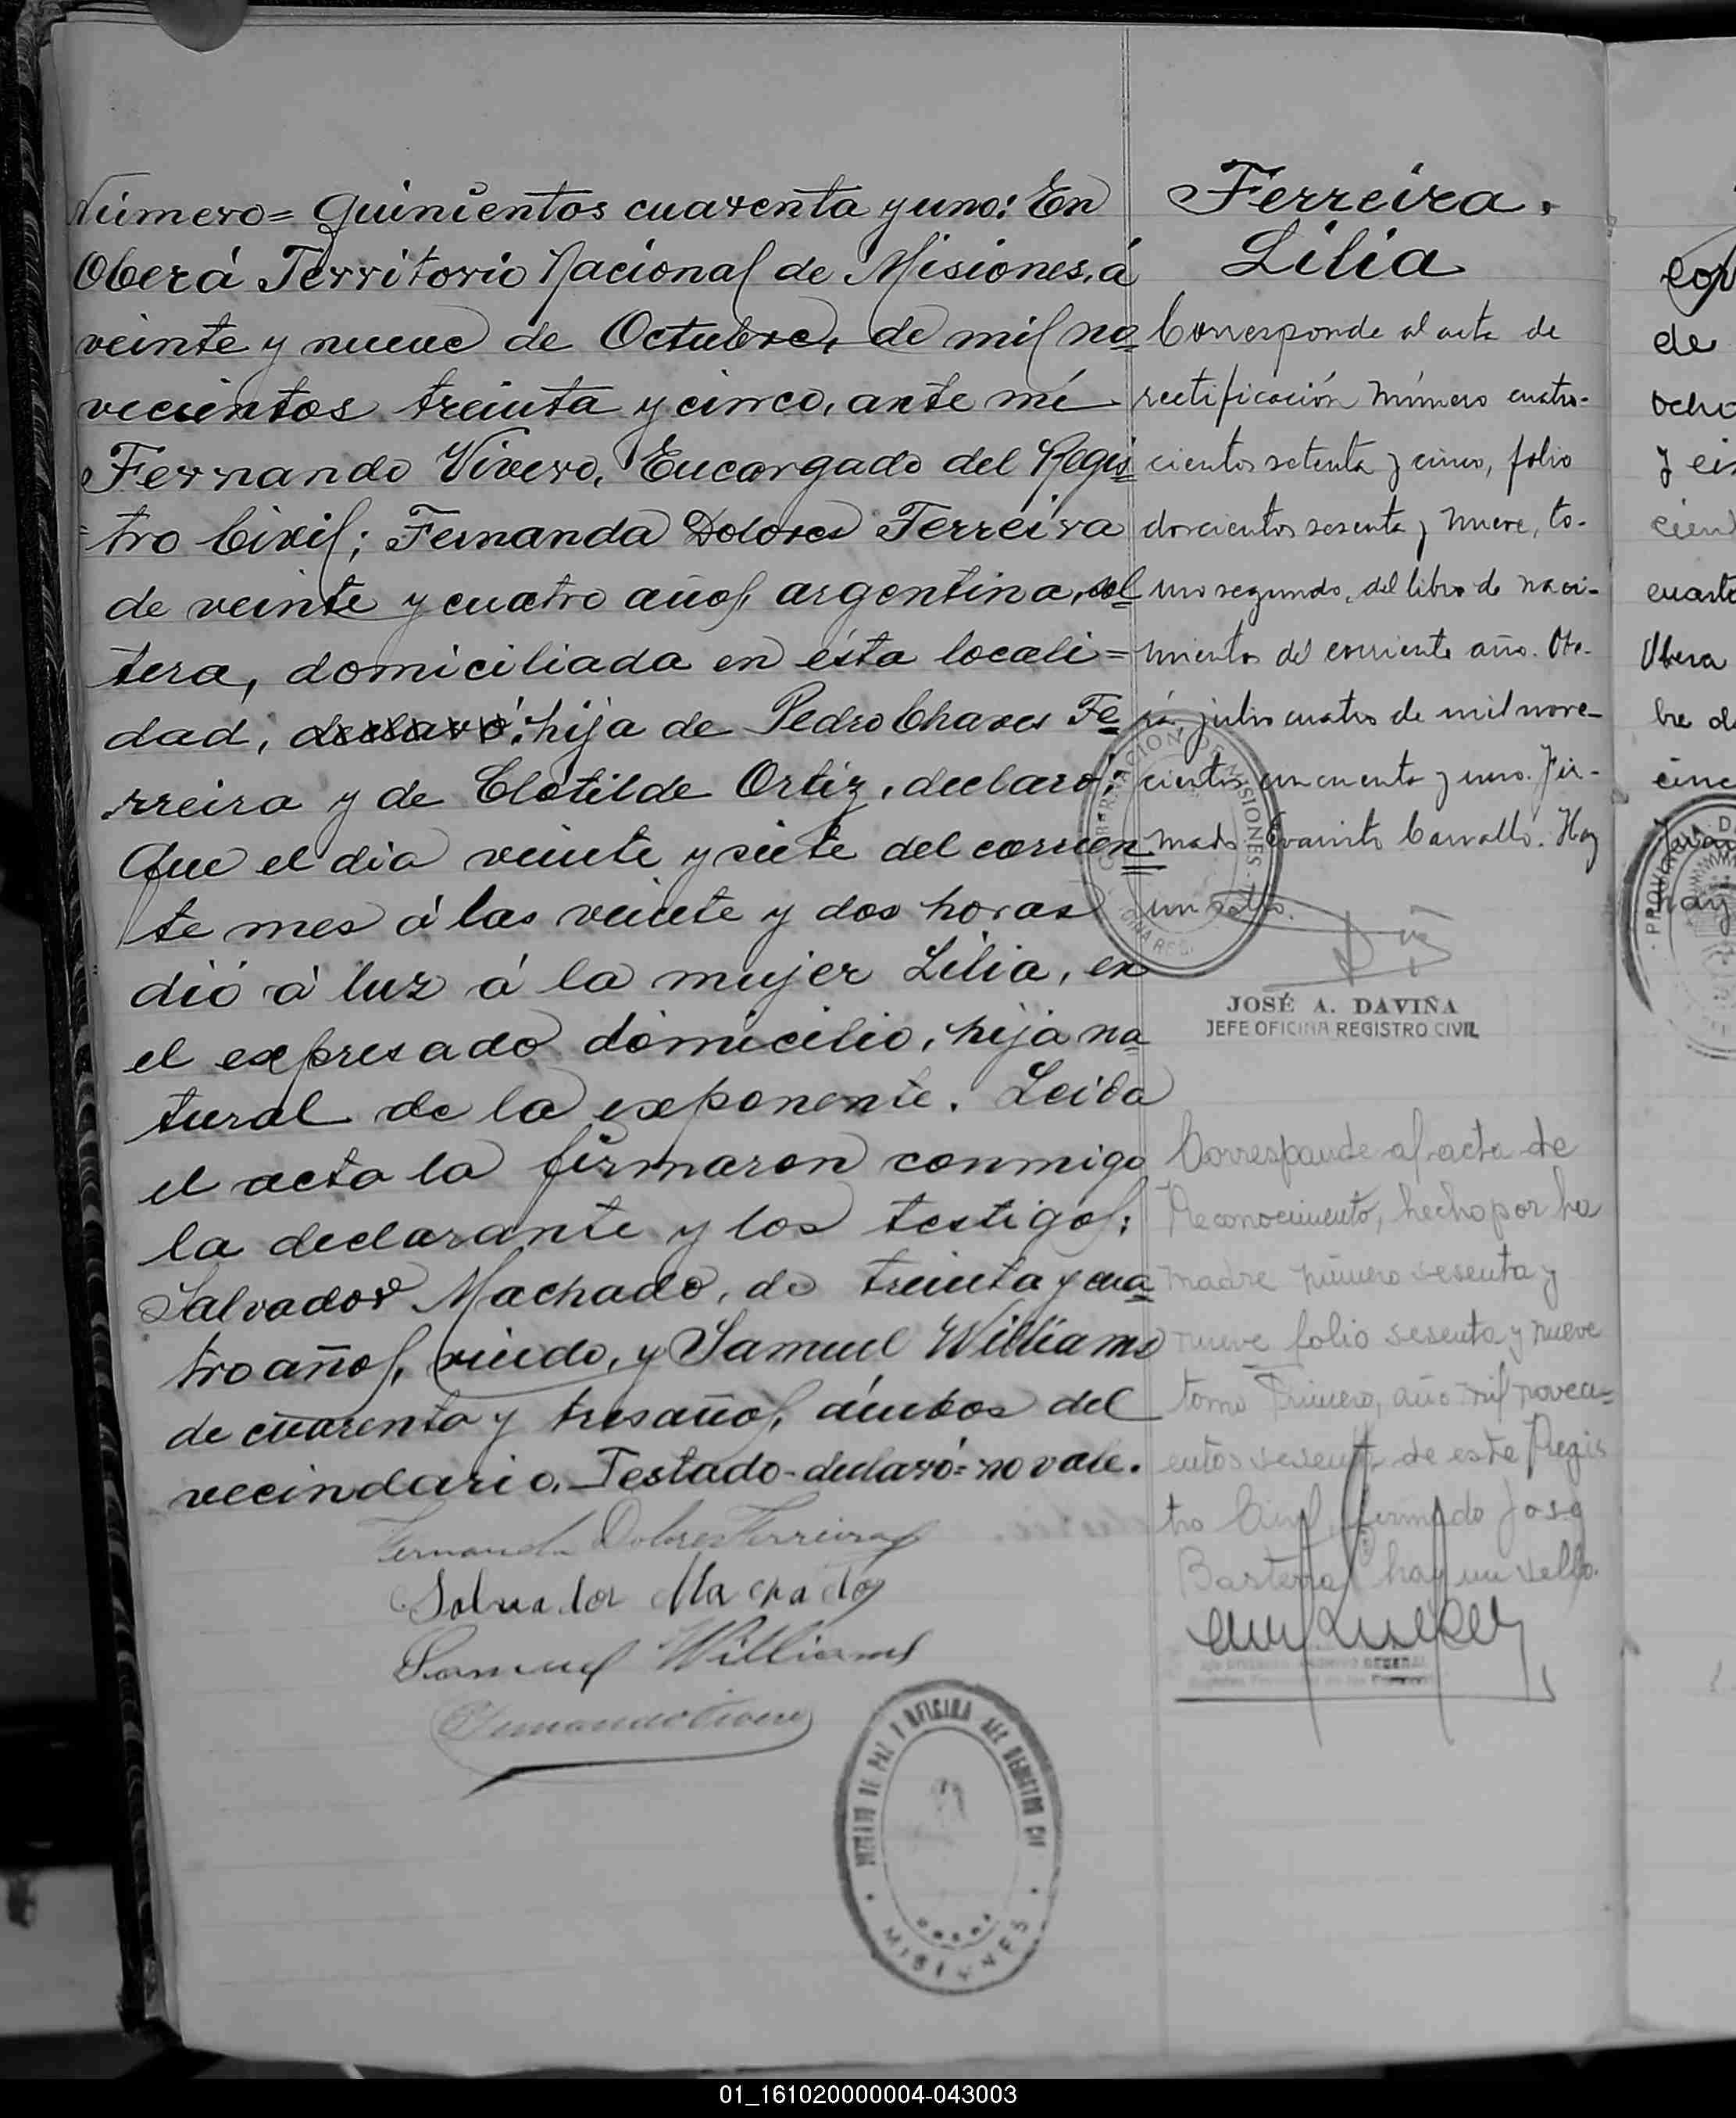 Número= Quinientos cuarenta y uno: En
Oberá Territorio Nacional de Misiones, á
veinte y nueve de Octubre, de mil no=
vecientos treinta y cinco, ante mí
Fernando Vivero, Encargado del Regis=
=tro Civil; Fernanda Dolores Ferreira
de veinte y cuatro años, argentina, sol=
tera, domiciliada en ésta locali=
dad, declaró: hija de Pedro Chaves Fe=
rreira y de Clotilde Ortiz, declaró:
Que el dia veinte y siete del corrien=
te mes á las veinte y dos horas
dió á luz á la mujer Lilia, en
el expresado domicilio, hija na=
tural de la exponente. Leida
el acta la firmaron conmigo
la declarante y los testigos:
Salvador Machado, de treinta y cua=
tro años, viudo, y Samuel Williams
de cuarenta y tres años, ámbos del
vecindario. Testado-declaró=no vale.
Fernanda Dolores Ferreira
Salvador Machado
Samuel Williams
Fernando Vivero
JUZGADO DE PAZ Y OFICINA DEL REGISTRO CIV
MISIONES
Ferreira.
Lilia
Corresponde al acta de
rectificación número cuatro-
cientos setenta y cinco, folio
doscientos sesenta y nueve, to-
mo segundo, del libro de naci-
mientos del corriente año. Obe-
rá, julio cuatro de mil nove-
cientos cincuenta y uno. Fir-
mado Evaristo Carvallo. Hay
un sello.
GOBERNACION DE MISIONES
JOSÉ A. DAVIÑA
JEFE OFICINA REGISTRO CIVIL
Corresponde al acta de
Reconocimiento, hecho por la
madre número sesenta y
nueve folio sesenta y nueve
tomo Primero, año mil novecí=
entos sesenta de este Regis
tro Civil, firmado José
Basterra hay un sello.
GENERAL
cop
de
ocho
y ci
cien
cuarto
Obera
bre d
cinc
hay
PROV
01_161020000004-043003